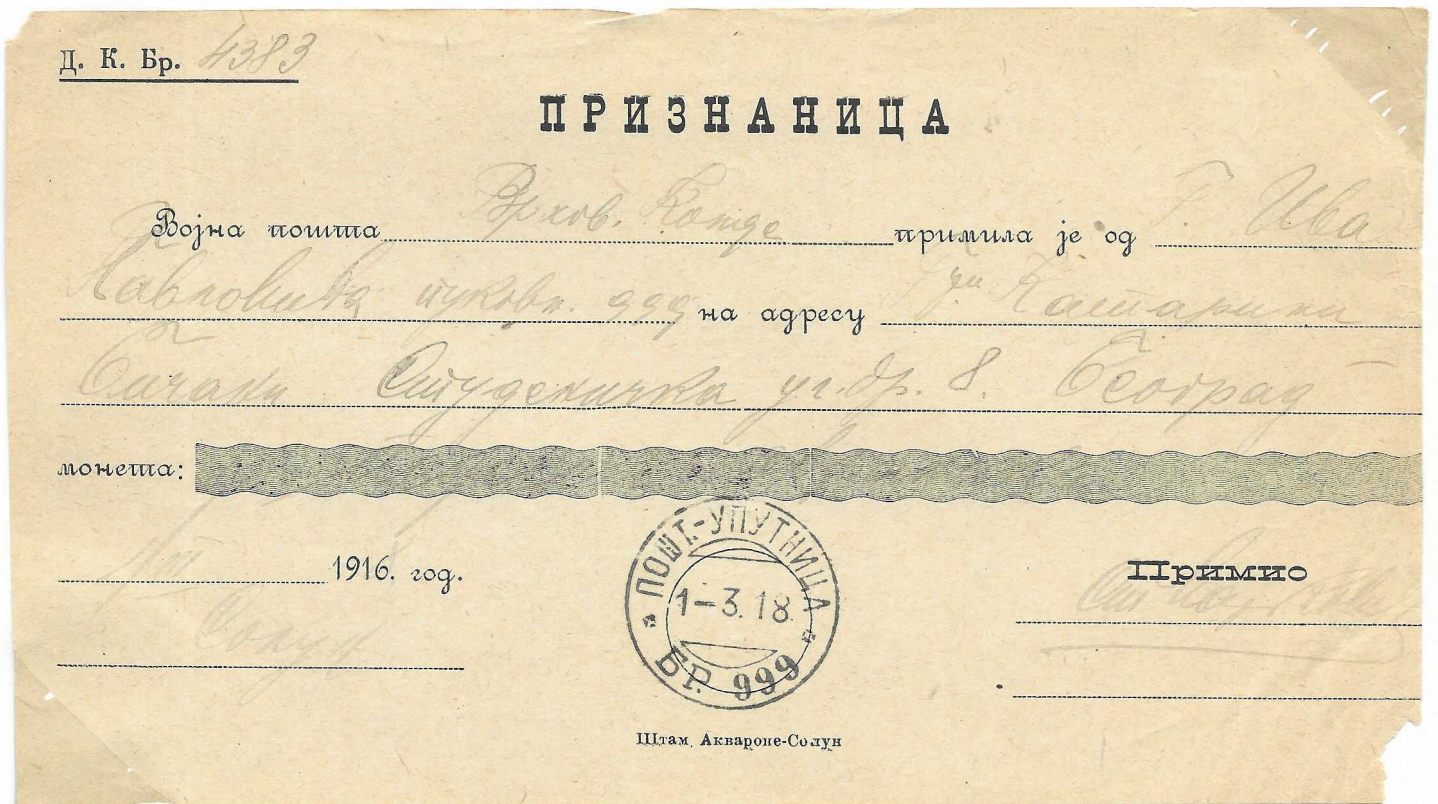 Д. К. Бр. 4383
ПРИЗНАНИЦА
Војна пошта Врхов. Комде примила је од Г. Ива
Павловића пуковн. на адресу Г-ђи Катарини
Студеничка ул. бр. 8. Београд
монета:
1916. год.
Примио
Солун
ПОШТ.-УПУТНИЦА
1-3.18.
БР. 999
Штам. Аквароне-Солун